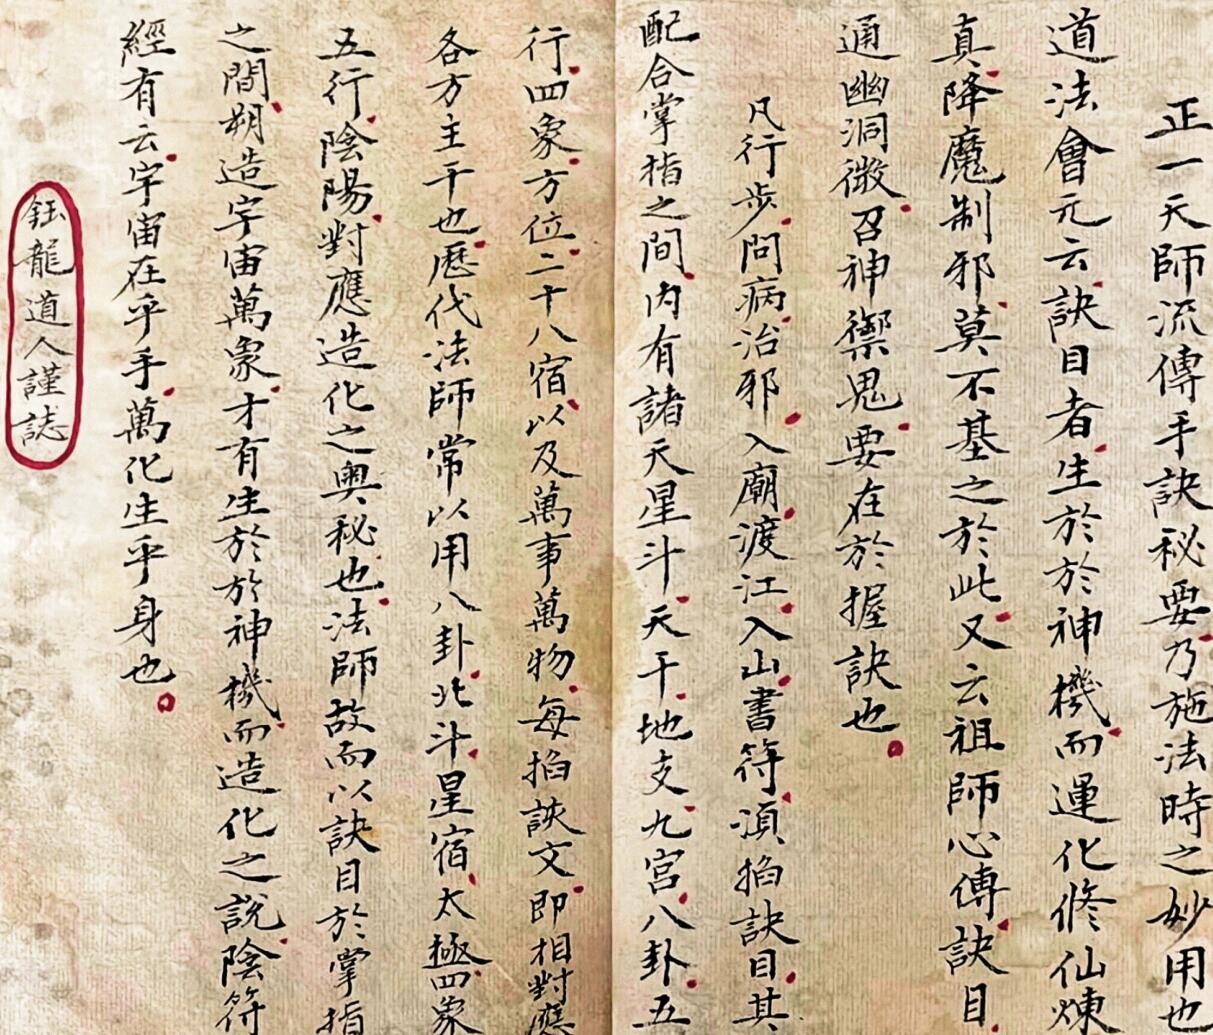 正一天師流傳手訣秘要乃施法時之妙用也
道法會元云訣目者生於於神機而運化修仙煉
真降魔制邪莫不基之於此又云祖師心傳訣目
通幽洞微召神禦鬼要在於握訣也
凡行步問病治邪入廟渡江入山書符湏掐訣目其
配合掌指之間內有諸天星斗天干地支九宮八卦五
行四象方位二十八宿以及萬事萬物每掐訣文即相對應
各方主干也歷代法師常以用八卦北斗星宿太極四象
五行陰陽對應造化之奧秘也法師故而以訣目於掌指
之間朔造宇宙萬象才有生於於神機而造化之說陰符
經有云宇宙在乎手萬化生乎身也
鈺龍道人謹誌